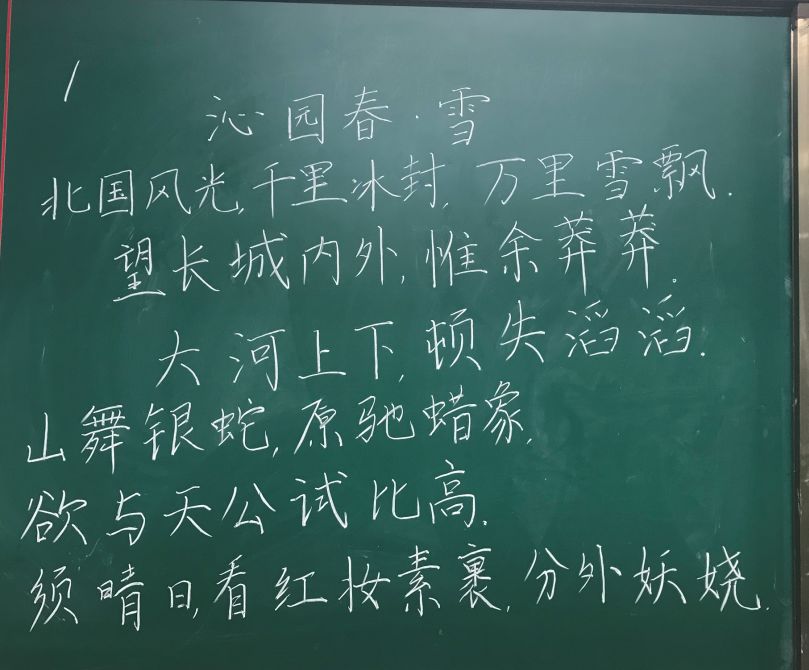 沁园春·雪
北国风光,千里冰封,万里雪飘.
望长城内外,惟余莽莽。
大河上下,顿失滔滔.
山舞银蛇,原驰蜡象,
欲与天公试比高.
须晴日,看红妆素裹,分外妖娆.